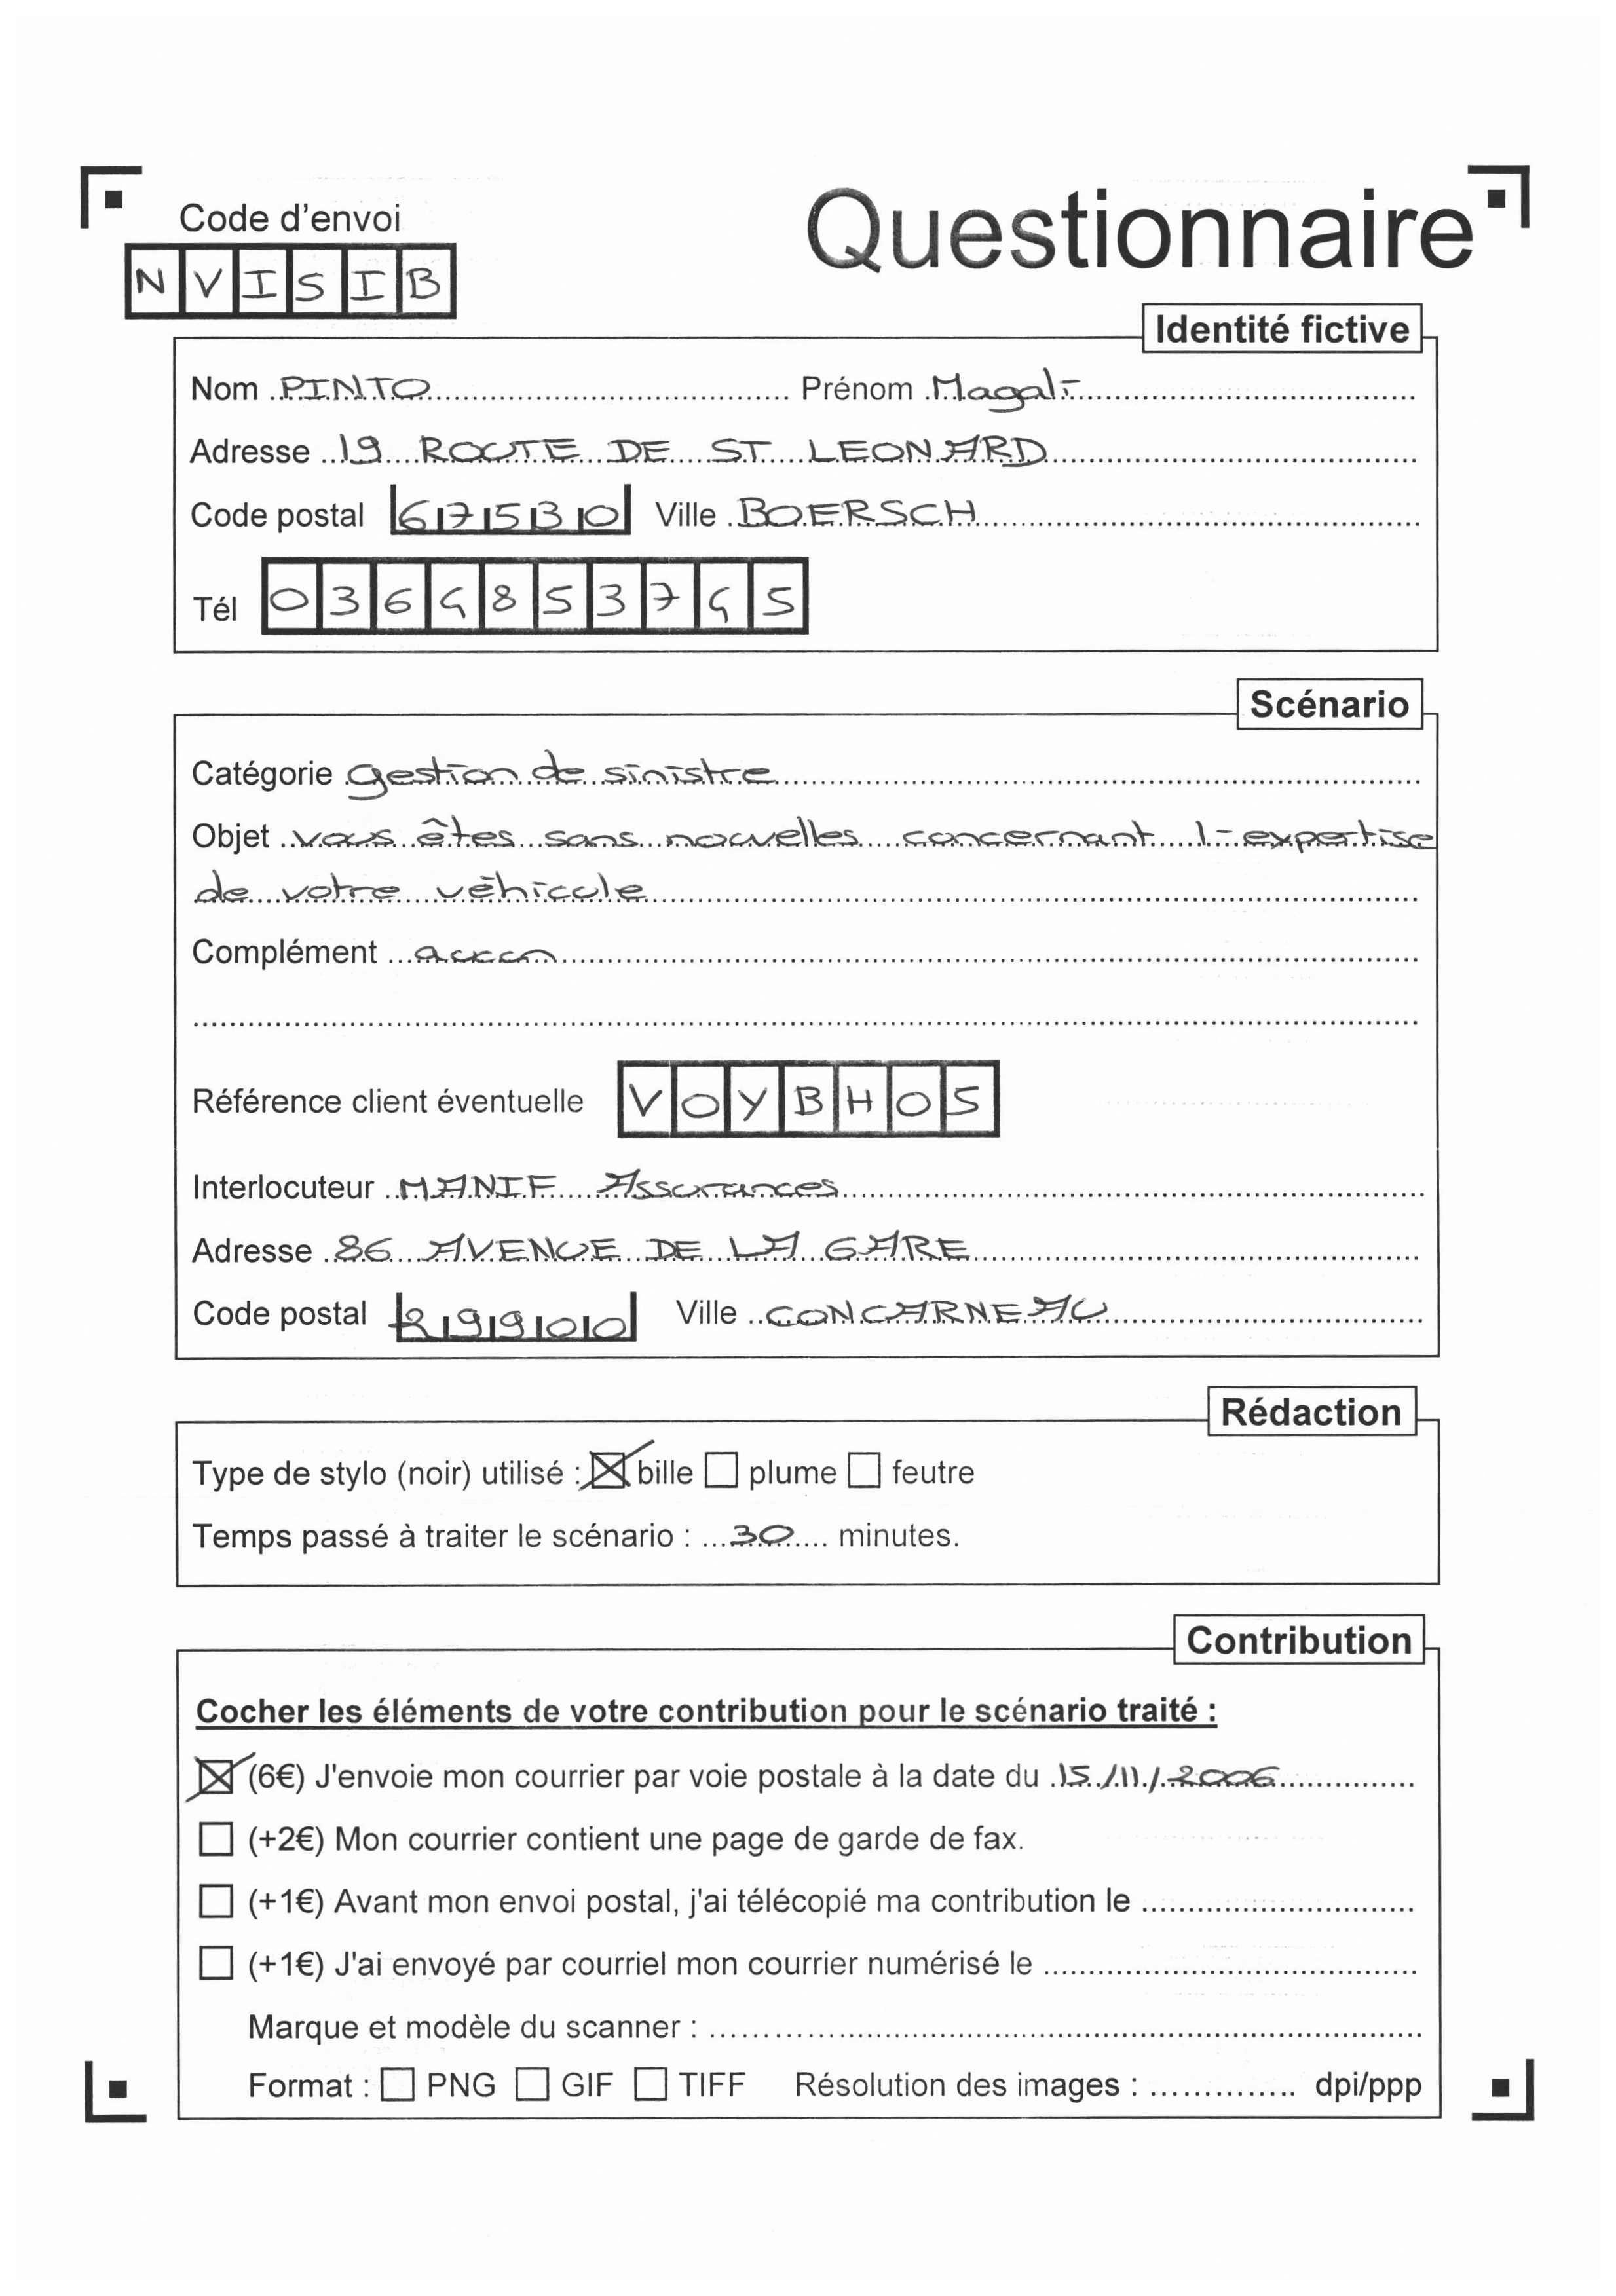 Code d'envoi
Questionnaire
NVISIB
Identité fictive
Nom PINTO Prénom Magali
Adresse 19 ROUTE DE ST LEONARD
Code postal 67530 Ville BOERSCH
Tél 0364853745
Scénario
Catégorie gestion de sinistre
Objet vous êtes sans nouvelles concernant l'expertise
de votre véhicule
Complément aucun
Référence client éventuelle VOYBHOS
Interlocuteur MANIF Assurances
Adresse 86 AVENUE DE LA GARE
Code postal 29900 Ville CONCARNEAU
Rédaction
Type de stylo (noir) utilisé : bille plume feutre
Temps passé à traiter le scénario : 30 minutes.
Contribution
Cocher les éléments de votre contribution pour le scénario traité :
(6€) J'envoie mon courrier par voie postale à la date du 15/11/2006
(+2€) Mon courrier contient une page de garde de fax.
(+1€) Avant mon envoi postal, j'ai télécopié ma contribution le
(+1€) J'ai envoyé par courriel mon courrier numérisé le
Marque et modèle du scanner :
Format : PNG GIF TIFF Résolution des images : dpi/ppp